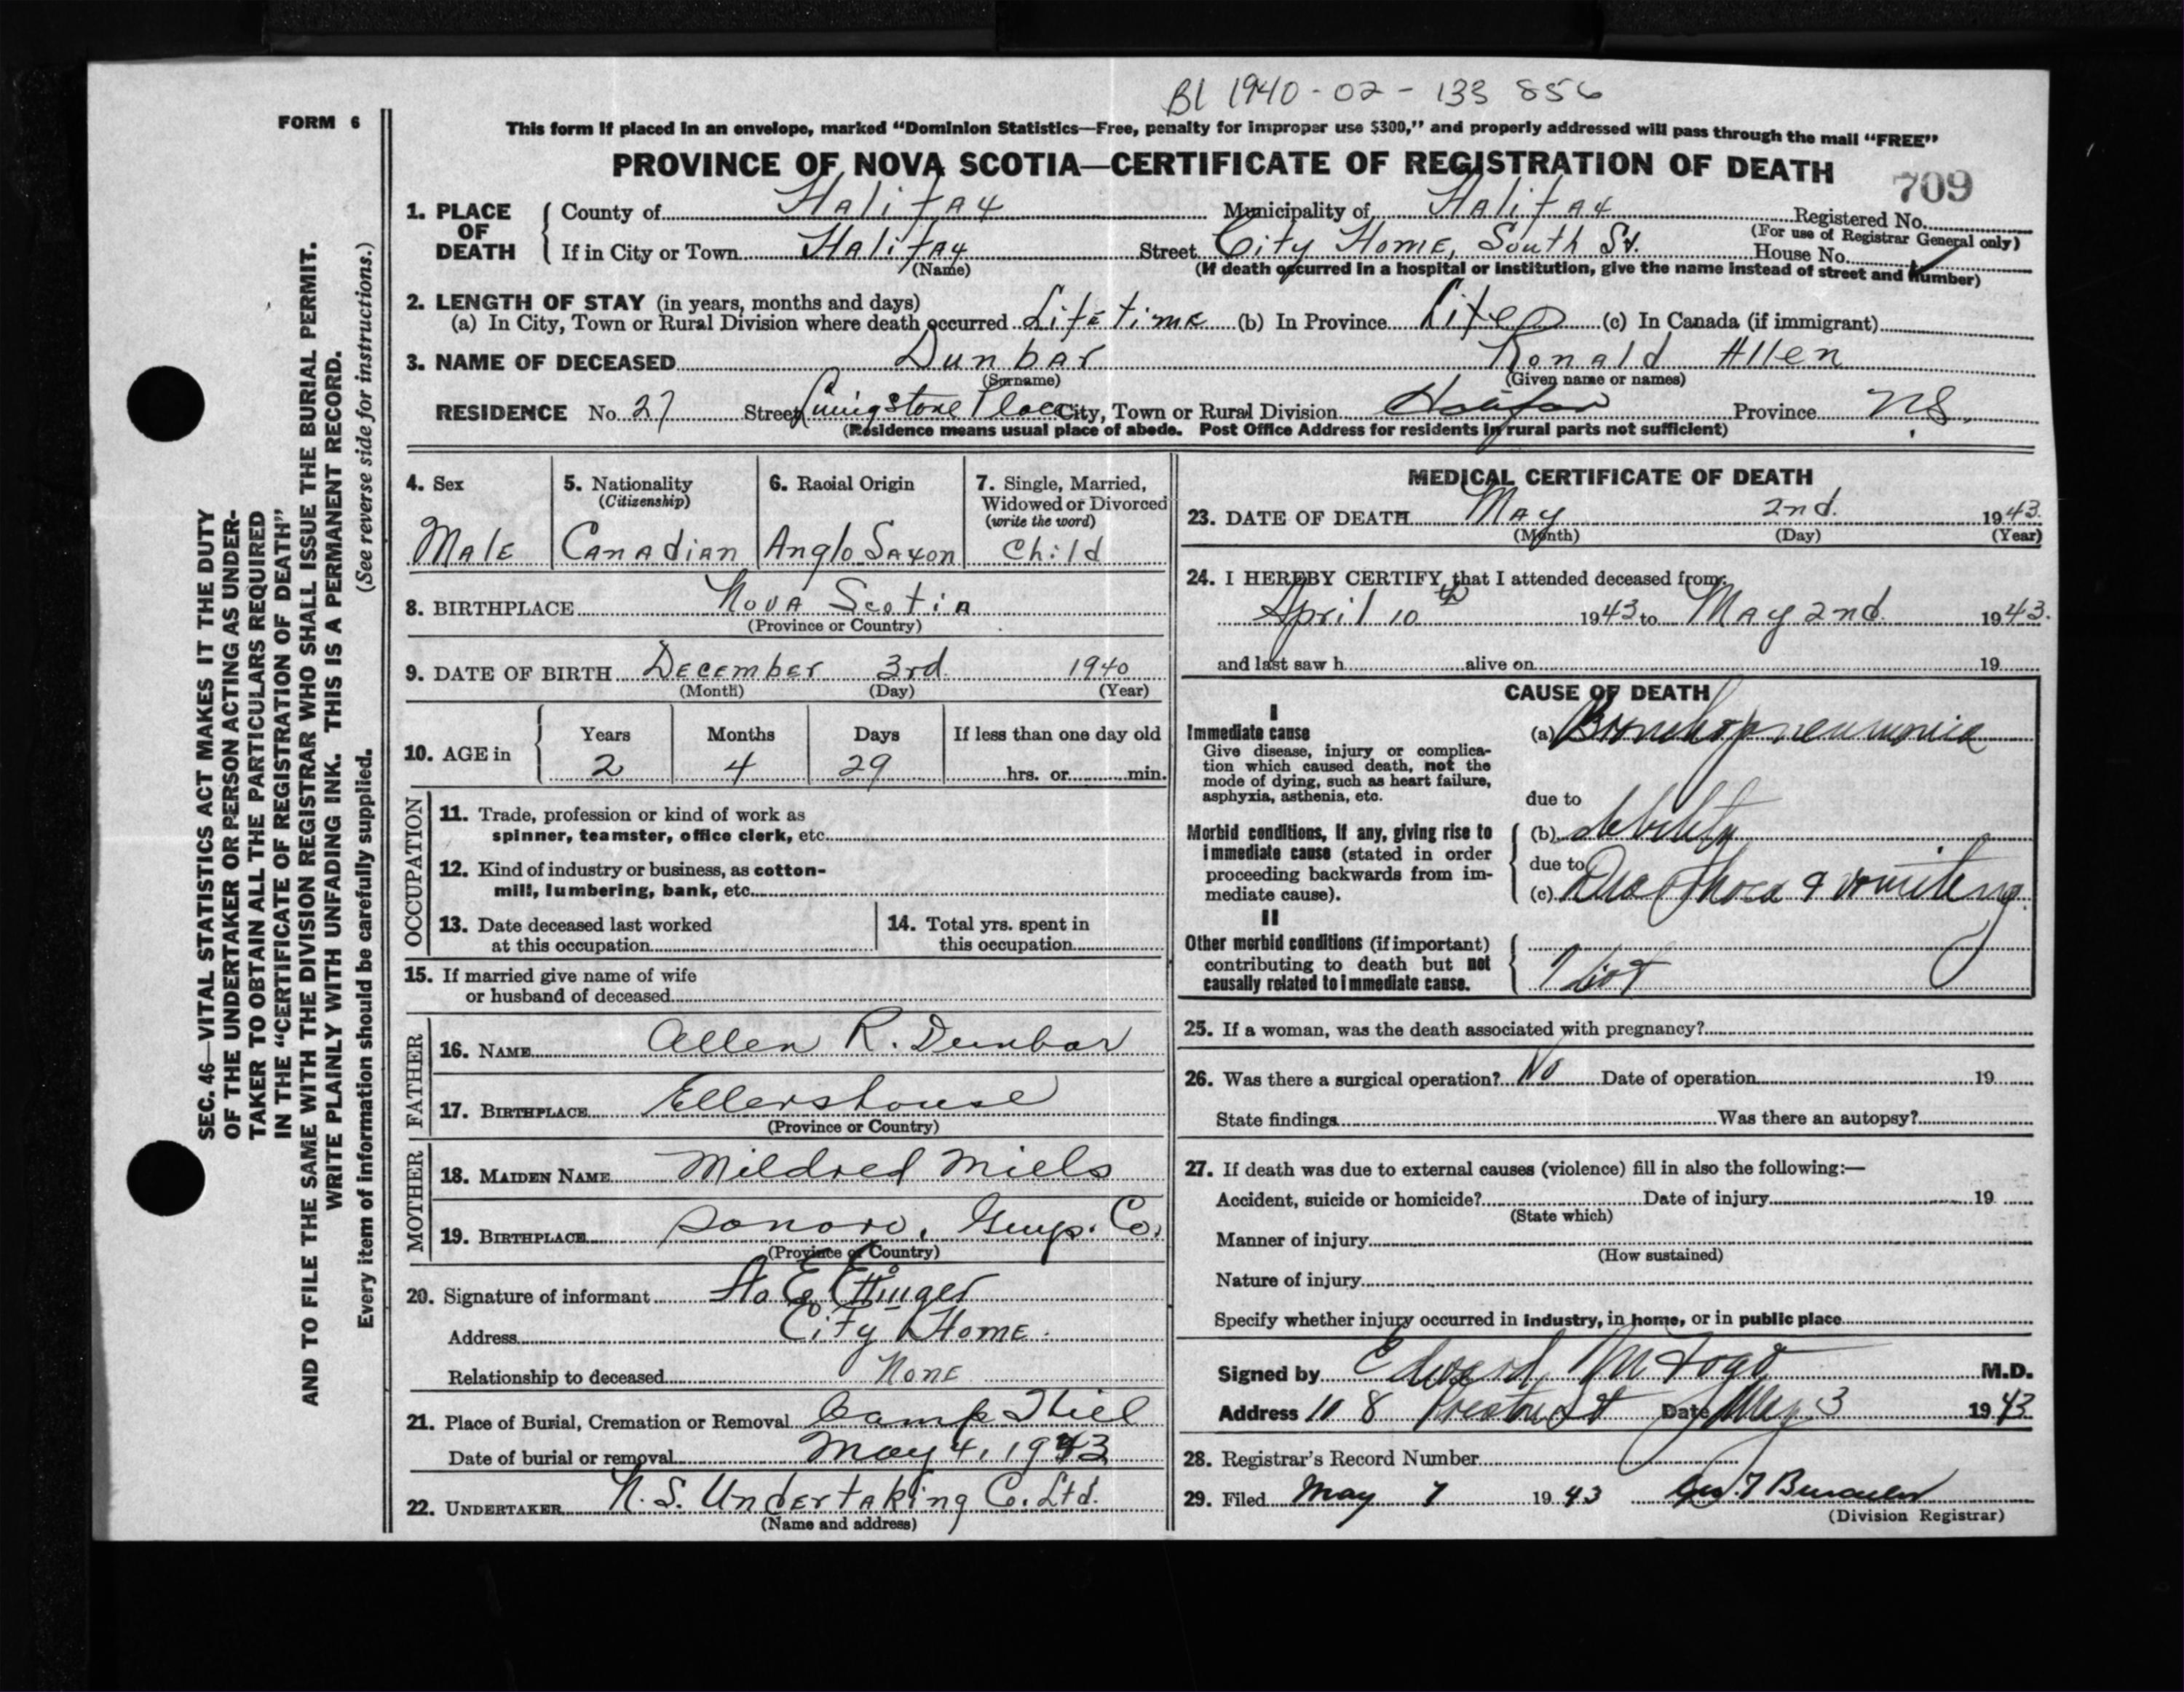 BL 1940-02-133 856
FORM 6
This form if placed in an envelope, marked "Dominion Statistics—Free, penalty for improper use $300," and properly addressed will pass through the mail "FREE"
PROVINCE OF NOVA SCOTIA—CERTIFICATE OF REGISTRATION OF DEATH
709
1. PLACE OF DEATH
County of Halifax Municipality of Halifax Registered No.
(For use of Registrar General only)
If in City or Town Halifax Street City Home, South St. House No.
(Name) (If death occurred in a hospital or institution, give the name instead of street and number)
2. LENGTH OF STAY (in years, months and days)
(a) In City, Town or Rural Division where death occurred Lifetime (b) In Province Life (c) In Canada (if immigrant)
3. NAME OF DECEASED Dunbar Ronald Allen
(Surname) (Given name or names)
RESIDENCE No. 27 Street Livingstone Place City, Town or Rural Division Halifax Province N.S.
(Residence means usual place of abode. Post Office Address for residents in rural parts not sufficient)
4. Sex
Male
5. Nationality
(Citizenship)
Canadian
6. Racial Origin
Anglo Saxon
7. Single, Married,
Widowed or Divorced
(write the word)
Child
8. BIRTHPLACE Nova Scotia
(Province or Country)
9. DATE OF BIRTH December 3rd 1940
(Month) (Day) (Year)
10. AGE in
Years Months Days If less than one day old
2 4 29 hrs. or min.
OCCUPATION
11. Trade, profession or kind of work as
spinner, teamster, office clerk, etc.
12. Kind of industry or business, as cotton-
mill, lumbering, bank, etc.
13. Date deceased last worked
at this occupation
14. Total yrs. spent in
this occupation
15. If married give name of wife
or husband of deceased
FATHER
16. NAME Allen R. Dunbar
17. BIRTHPLACE Ellershouse
(Province or Country)
MOTHER
18. MAIDEN NAME Mildred Miels
19. BIRTHPLACE Sonora, Guys. Co.
(Province or Country)
20. Signature of informant E. Ettinger
Address City Home.
Relationship to deceased None
21. Place of Burial, Cremation or Removal Camp Hill
Date of burial or removal May 4, 1943
22. UNDERTAKER N.S. Undertaking Co. Ltd.
(Name and address)
MEDICAL CERTIFICATE OF DEATH
23. DATE OF DEATH May 2nd. 1943.
(Month) (Day) (Year)
24. I HEREBY CERTIFY that I attended deceased from:
April 10th 1943 to May 2nd. 1943.
and last saw h alive on 19
CAUSE OF DEATH
I
Immediate cause
Give disease, injury or complica-
tion which caused death, not the
mode of dying, such as heart failure,
asphyxia, asthenia, etc.
(a) Bronchopneumonia
due to
Morbid conditions, if any, giving rise to
immediate cause (stated in order
proceeding backwards from im-
mediate cause).
(b) debility
due to
(c) Diarrhoea & vomiting
II
Other morbid conditions (if important)
contributing to death but not
causally related to immediate cause.
Idiot
25. If a woman, was the death associated with pregnancy?
26. Was there a surgical operation? No Date of operation 19
State findings Was there an autopsy?
27. If death was due to external causes (violence) fill in also the following:—
Accident, suicide or homicide? Date of injury 19
(State which)
Manner of injury
(How sustained)
Nature of injury
Specify whether injury occurred in industry, in home, or in public place
Signed by Edward M Fogo M.D.
Address 108 St Date May 3 1943
28. Registrar's Record Number
29. Filed May 7 1943
(Division Registrar)
SEC. 46—VITAL STATISTICS ACT MAKES IT THE DUTY
OF THE UNDERTAKER OR PERSON ACTING AS UNDER-
TAKER TO OBTAIN ALL THE PARTICULARS REQUIRED
IN THE "CERTIFICATE OF REGISTRATION OF DEATH"
AND TO FILE THE SAME WITH THE DIVISION REGISTRAR WHO SHALL ISSUE THE BURIAL PERMIT.
WRITE PLAINLY WITH UNFADING INK. THIS IS A PERMANENT RECORD.
Every item of information should be carefully supplied. (See reverse side for instructions.)